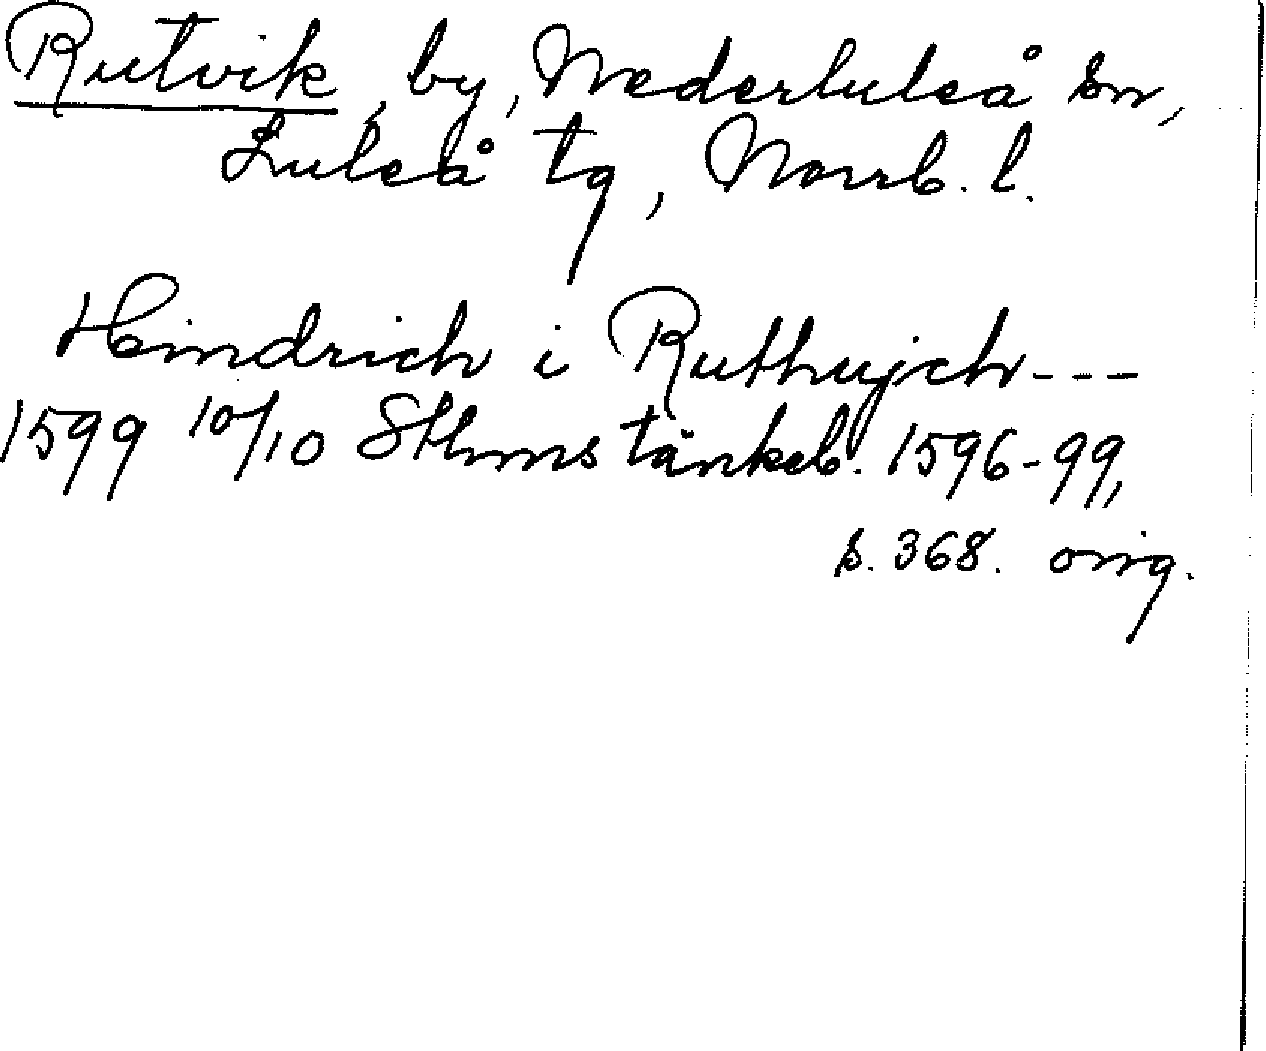 Rutvik, by, Nederluleå sn,
Luleå tg, Norrb. l.
Hindrich i Ruthujch---
1599 10/10 Sthms tänkeb. 1596-99,
s. 368. orig.